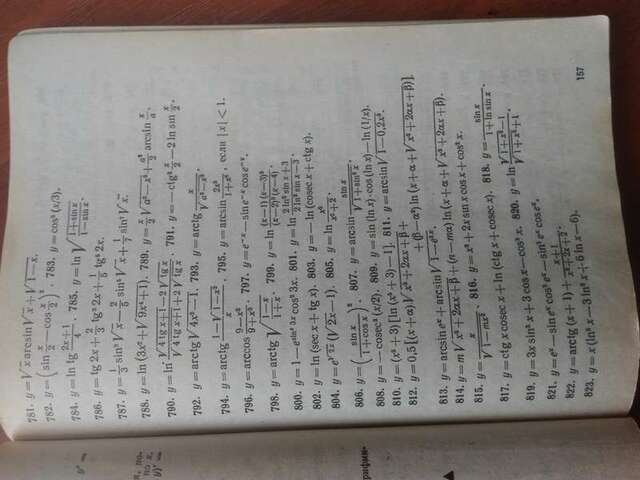 781. y = √x arcsin √x + √(1−x).
782. y = (sin x/2 − cos x/2)². 783. y = cos³ (x/3).
784. y = ln tg (2x+1)/4. 785. y = ln √((1+sin x)/(1−sin x)).
786. y = tg 2x + 2/3 tg³ 2x + 1/5 tg⁵ 2x.
788. y = ln (3x² + √(9x⁴+1)). 789. y = x/2 √(a²−x²) + a²/2 arcsin x/a.
790. y = ln (√(4 tg x+1) − 2√(tg x))/(√(4 tg x+1) + 2√(tg x)). 791. y = −ctg² x/2 − 2 ln sin x/2.
792. y = arctg √(4x²−1). 793. y = arctg x/√(a²−x²).
794. y = arctg (1−√(1−x²))/x. 795. y = arcsin 2x/(1+x²), если |x| < 1.
796. y = arccos (9−x²)/(9+x²). 797. y = e⁻ˣ − sin e⁻ˣ cos e⁻ˣ.
798. y = arctg √((1−x)/(1+x)). 799. y = ln
800. y = 1 − e^(sin² 3x) cos² 3x. 801. y = ln (2 ln sin x+3)/(2 ln sin x−3).
802. y = ln (sec x + tg x). 803. y = −ln (cosec x + ctg x).
804. y = (√(2x) − 1). 805. y = ln
806. y = (sin x/(1+cos x))². 807. y = arcsin sin x/√(1+sin² x).
808. y = −cosec² (x/2). 809. y = sin (ln x)·cos (ln x) − ln (1/x).
810. y = (x²+3) [ln (x²+3) − 1]. 811. y = arcsin √(1−0,2x²).
812. y = 0,5 [(x+α) √(x²+2αx+β) +
+ (β−α²) ln (x+α+√(x²+2αx+β))].
813. y = arcsin eˣ + arcsin √(1−e²ˣ).
814. y = m √(x²+2αx+β) + (n−mα) ln (x+α+√(x²+2αx+β)).
815. y = x/√(1−mx²). 816. y = x² + 2x sin x cos x + cos² x.
817. y = ctg x cosec x + ln (ctg x + cosec x). 818. y = sin x/(1+ln sin x).
819. y = 3x sin³ x + 3 cos x − cos³ x. 820. y = ln (√(x²+1)−1)/(√(x²+1)+1).
821. y = eˣ − sin eˣ cos³ eˣ − sin³ eˣ cos eˣ.
822. y = arctg (x+1) + (x+1)/(x²+2x+2).
823. y = x (ln³ x − 3 ln² x + 6 ln x − 6).
157